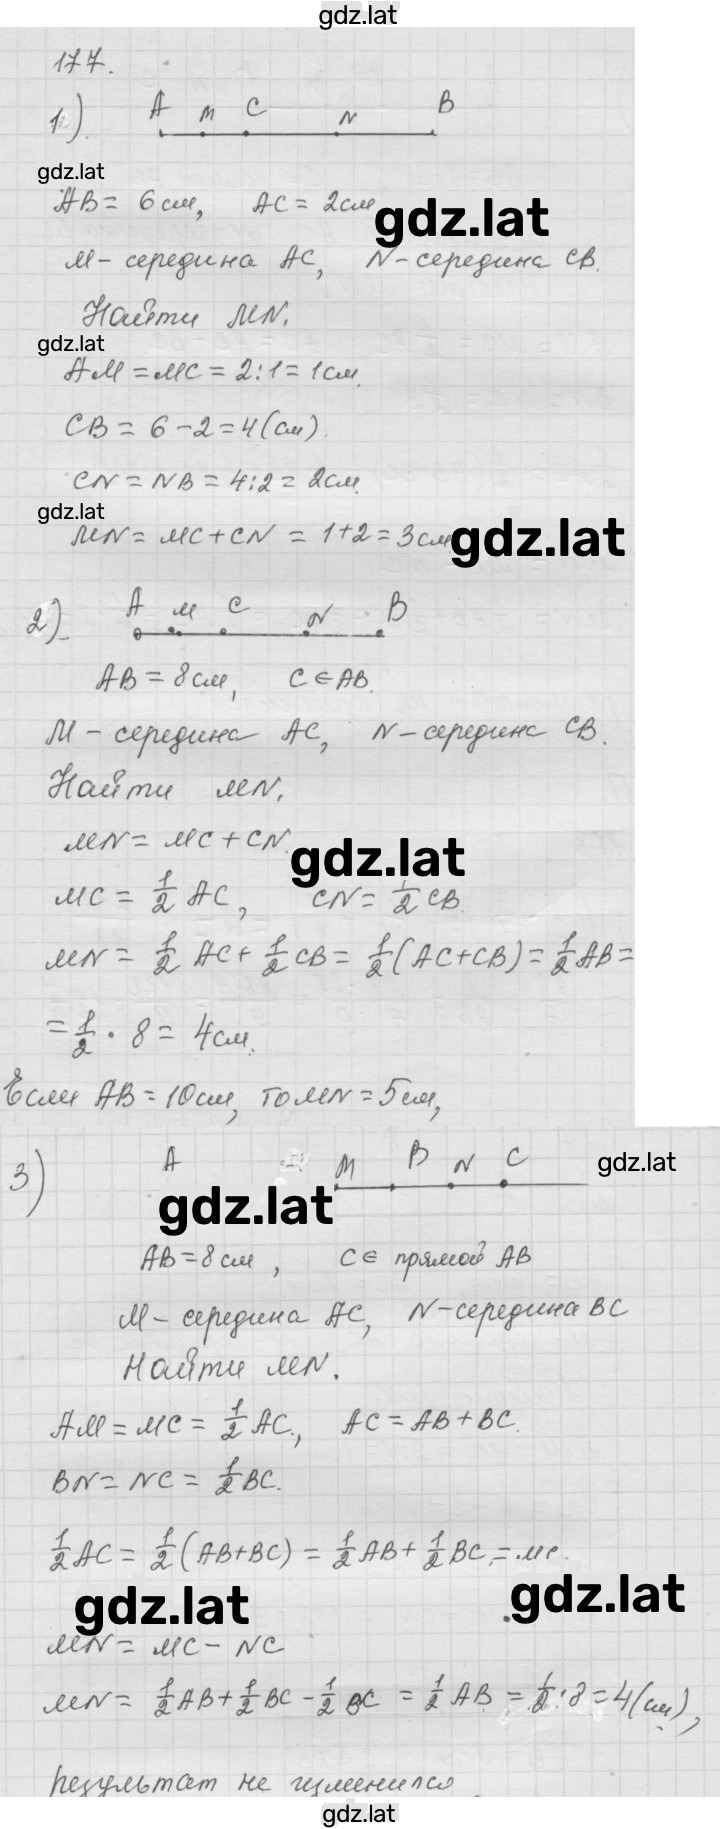 gdz.lat
177.
1).
A M C N B
gdz.lat
AB = 6 см, AC = 2 см
gdz.lat
M - середина AC, N - середина CB.
Найти MN.
gdz.lat
AM = MC = 2:1 = 1 см.
CB = 6 - 2 = 4 (см)
CN = NB = 4:2 = 2 см.
gdz.lat
MN = MC + CN = 1+2 = 3 см
gdz.lat
2)
A M C N B
AB = 8 см, C ∈ AB.
M - середина AC, N - середина CB.
Найти MN.
MN = MC + CN
gdz.lat
MC = 1/2 AC, CN = 1/2 CB
MN = 1/2 AC + 1/2 CB = 1/2 (AC+CB) = 1/2 AB =
= 1/2 · 8 = 4 см.
Если AB = 10 см, то MN = 5 см,
3)
A M B N C
gdz.lat
gdz.lat
AB = 8 см, C ∈ прямой AB
M - середина AC, N - середина BC
Найти MN.
AM = MC = 1/2 AC, AC = AB + BC.
BN = NC = 1/2 BC.
1/2 AC = 1/2 (AB+BC) = 1/2 AB + 1/2 BC = MC.
gdz.lat
gdz.lat
MN = MC - NC
MN = 1/2 AB + 1/2 BC - 1/2 BC = 1/2 AB = 1/2 : 8 = 4 (см),
результат не изменился.
gdz.lat